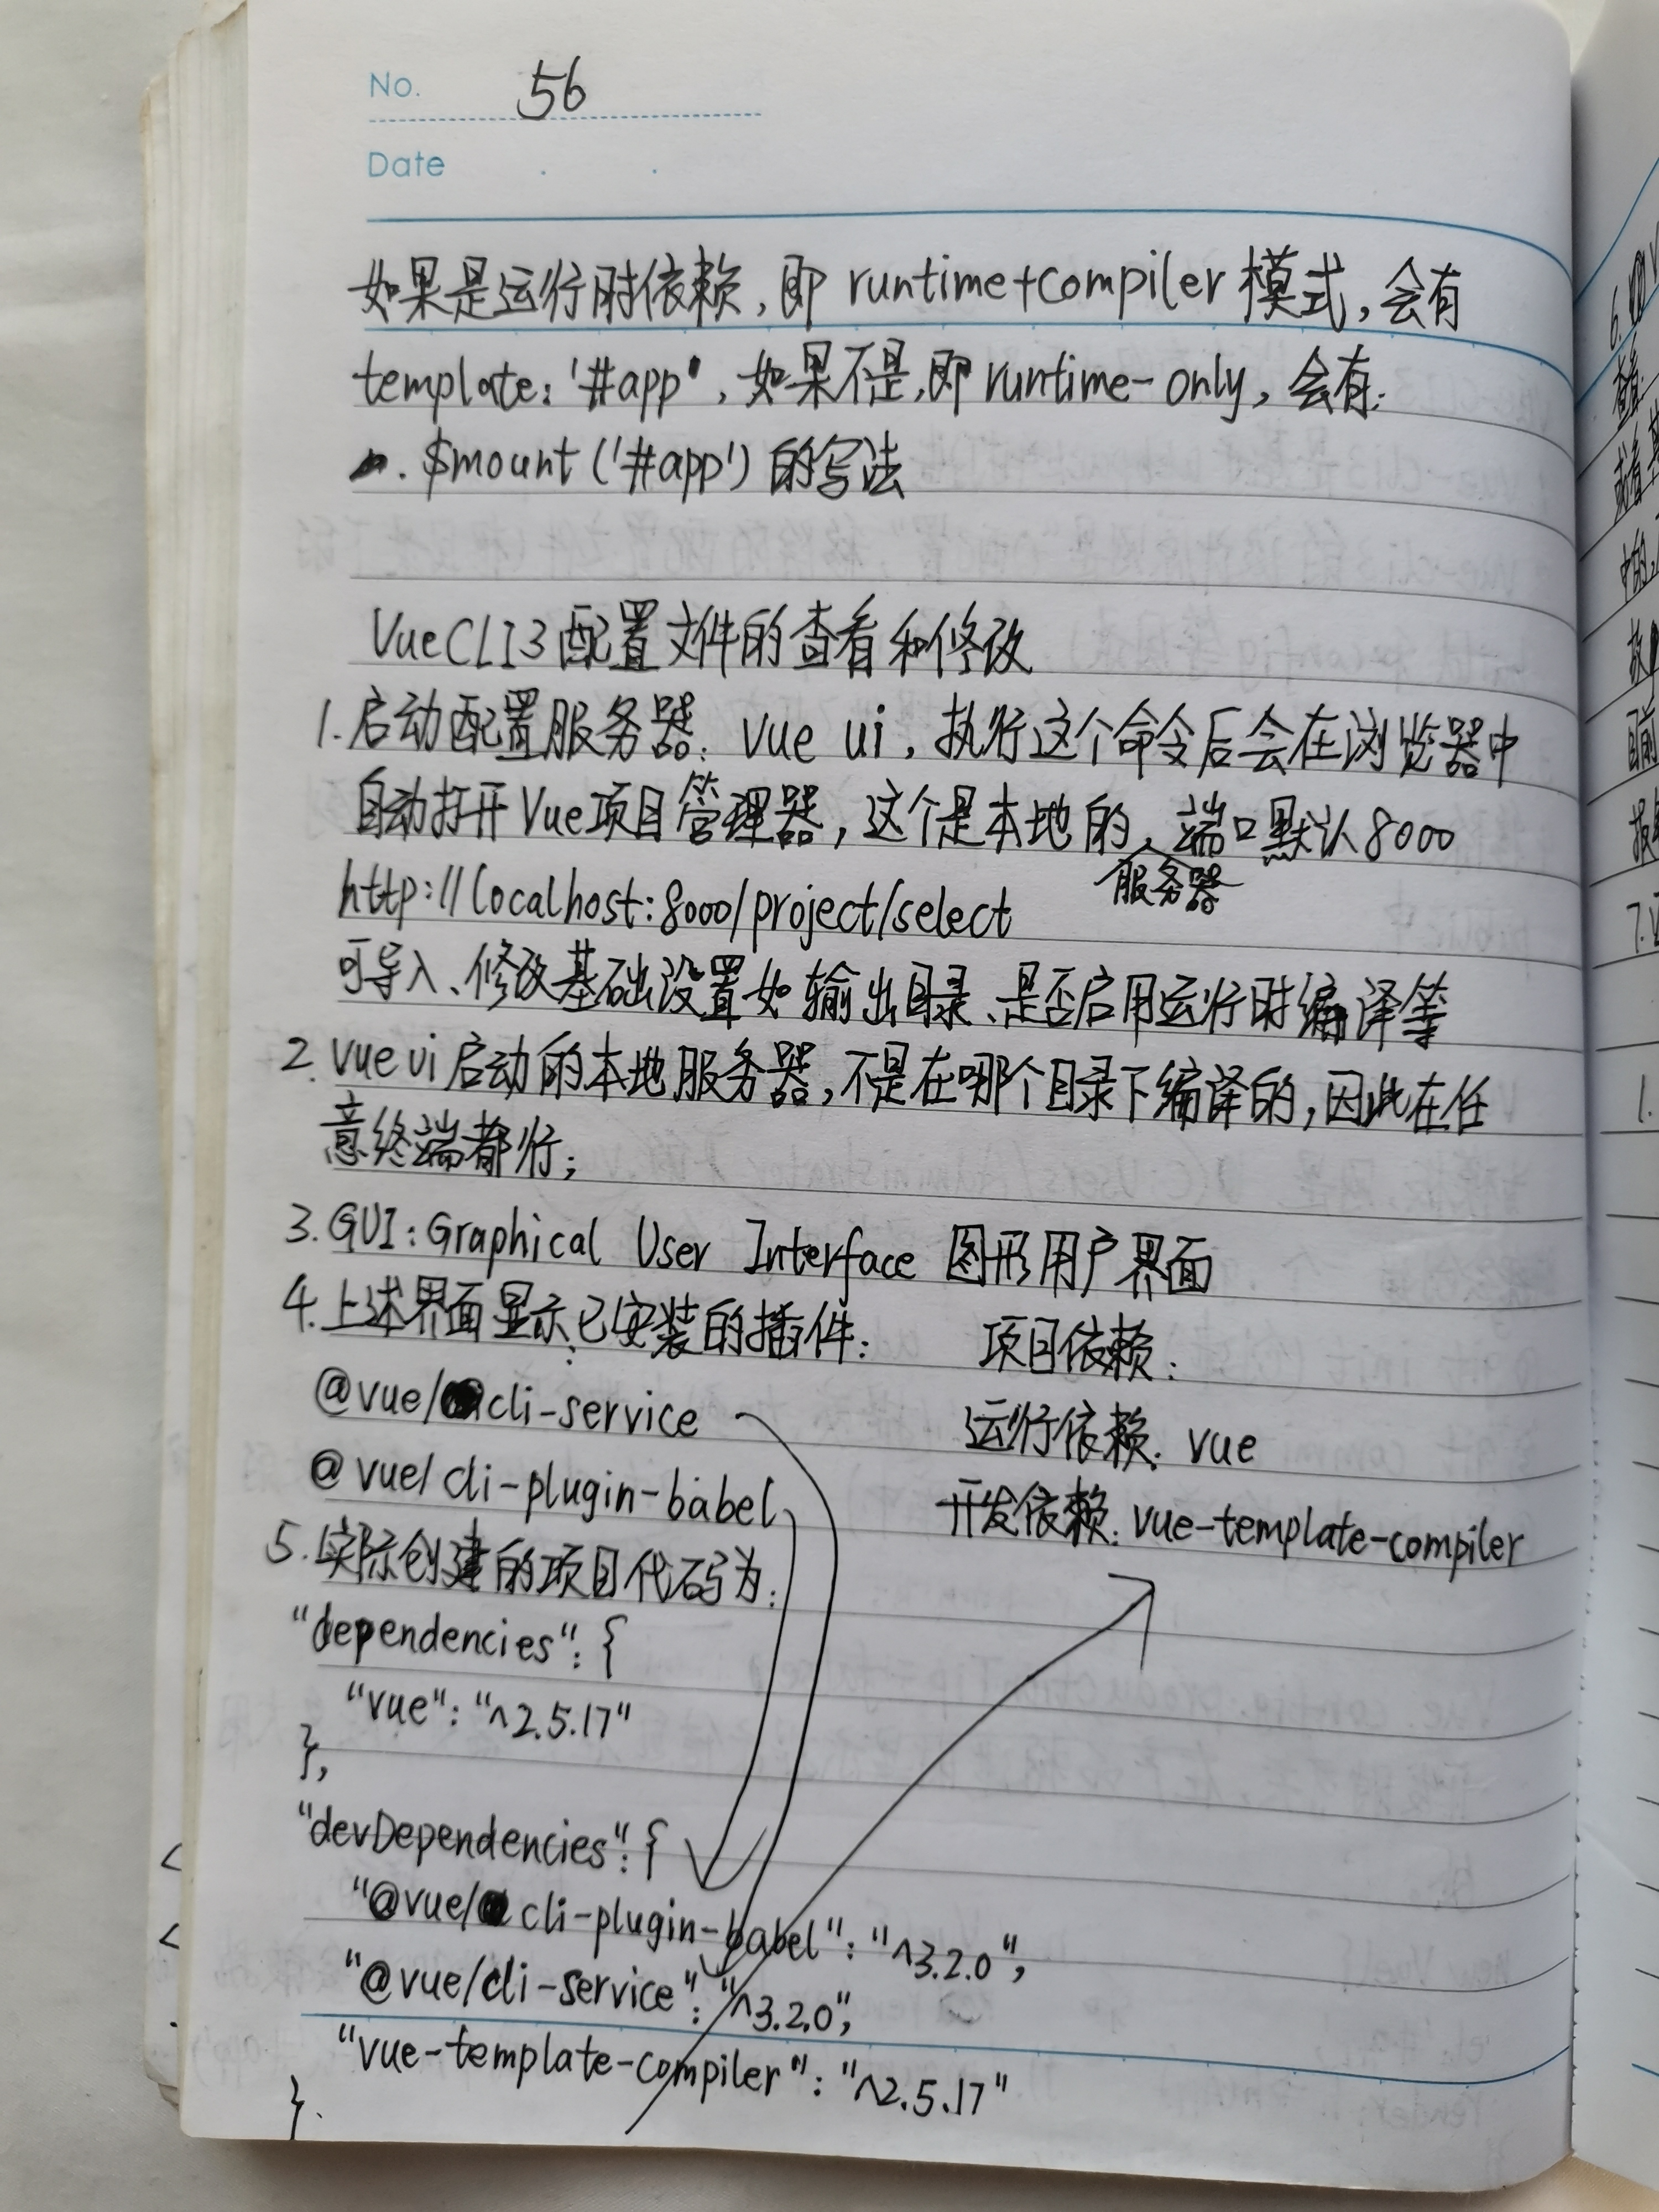 No. 56
Date
如果是运行时依赖,即 runtime+compiler 模式,会有
template: '#app',如果不是,即 runtime-only,会有:
. $mount ('#app') 的写法
VueCLI3配置文件的查看和修改
1.启动配置服务器: vue ui,执行这个命令后会在浏览器中
自动打开Vue项目管理器,这个是本地的服务器,端口默认8000
http://localhost:8000/project/select
可导入、修改基础设置如输出目录、是否启用运行时编译等
2.vue ui启动的本地服务器,不是在哪个目录下编译的,因此在任
意终端都行;
3.GUI:Graphical User Interface 图形用户界面
4.上述界面显示已安装的插件: 项目依赖:
@vue/cli-service 运行依赖: vue
@vue/cli-plugin-babel 开发依赖: vue-template-compiler
5.实际创建的项目代码为:
"dependencies": {
"vue": "^2.5.17"
},
"devDependencies": {
"@vue/cli-plugin-babel": "^3.2.0",
"@vue/cli-service": "^3.2.0",
"vue-template-compiler": "^2.5.17"
}.